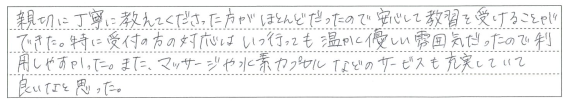 親切に丁寧に教えてくださった方がほとんどだったので安心して教習を受けることが
できた。特に受付の方の対応はいつ行っても温かく優しい雰囲気だったので利
用しやすかった。また、マッサージや水素カプセルなどのサービスも充実していて
良いなと思った。